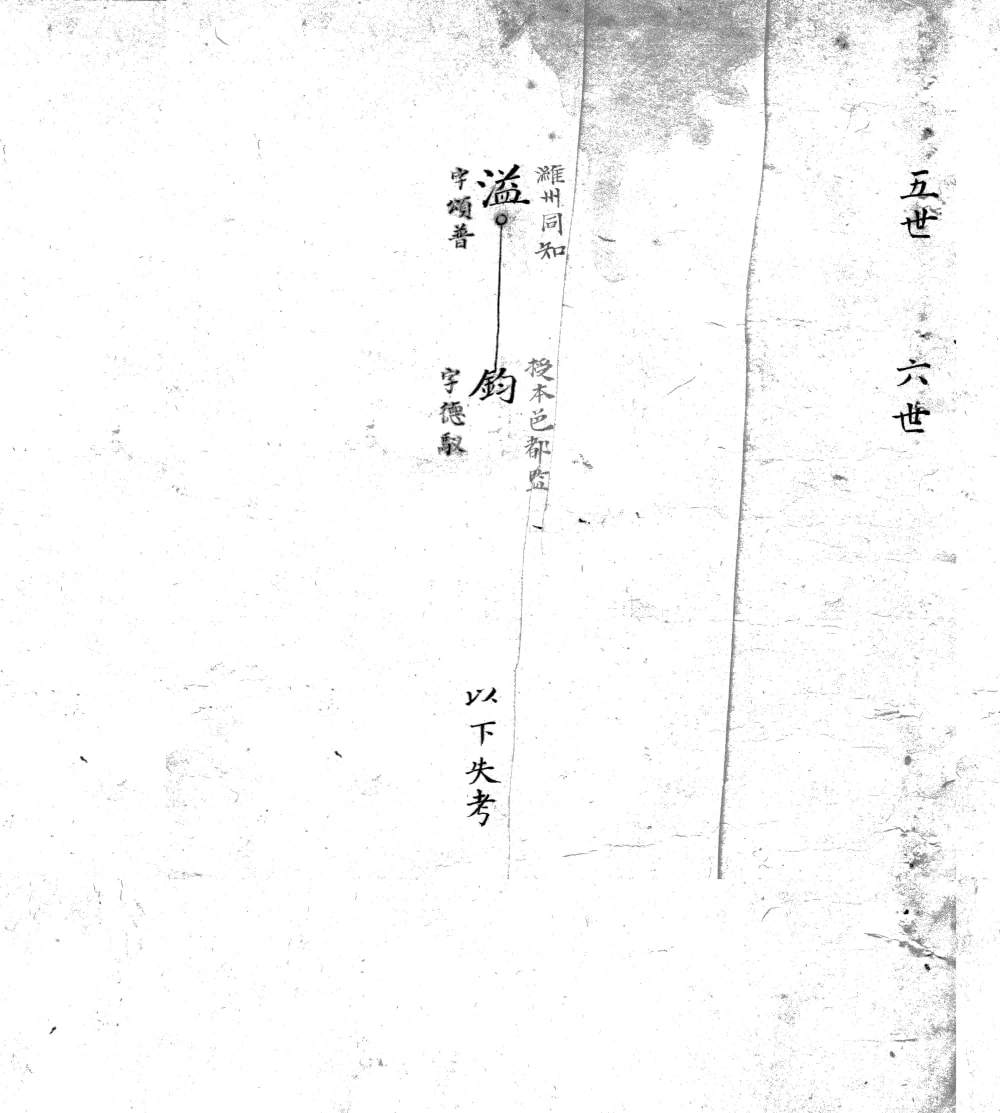 五世
六世
濰州同知
溢
字頌普
授本邑都監
鈞
字德馭
以下失考